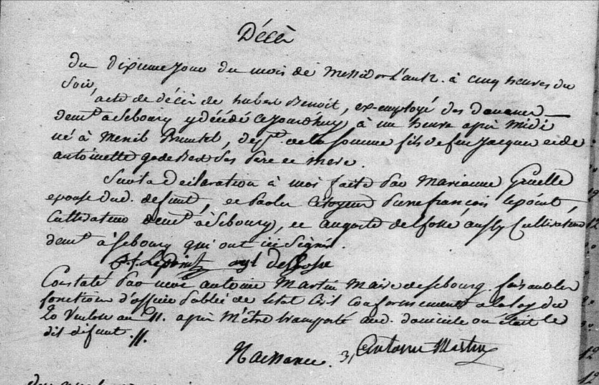 Décès
du dixième jour du mois de messidor l'an 12. à cinq heures du
soir,
acte de décès de hubert Benoit, ex employé des douanes
demt à Sebourg y décédé ce jourdhuy à une heure après midi
né à Menil, dept. de la Somme fils de feu Jacques et de
antoinette ses père et mère.
Sur la déclaration à moi faite par Marianne
épouse dud. défunt, et par le Citoyen Pierre françois Lepoint,
Cultivateur demt à Sebourg, et auguste delfosse aussy Cultivateur
demt à Sebourg qui ont ici Signé.
Lepoint aug delfosse
Constaté par moi antoine Martin Maire de Sebourg faisant les
fonctions d'officier public de l'état Civil Conformément à la loy du
20 an 11. après m'être transporté aud. domicile où était le
dit défunt //.
Naissance. 31 Antoine Martin